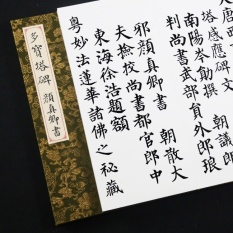 多寶塔碑 顏真卿書
大唐西
塔感應碑文
南陽岑勛撰 朝議
判尚書武部員外郎琅
邪顏真卿書 朝散大
夫撿校尚書都官郎中
東海徐浩題額
粵妙法蓮華諸佛之秘藏